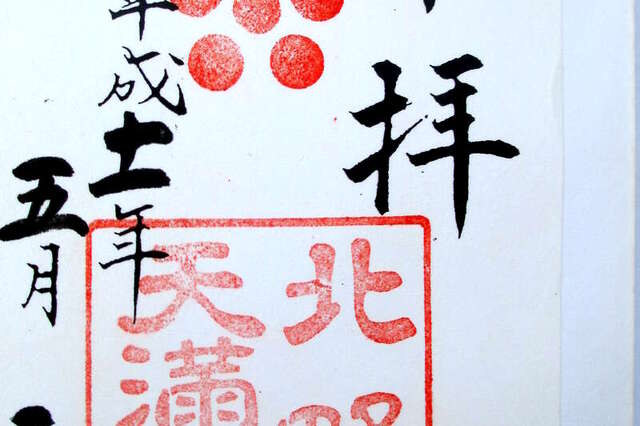 拝
北野
天滿
平成十一年
五月